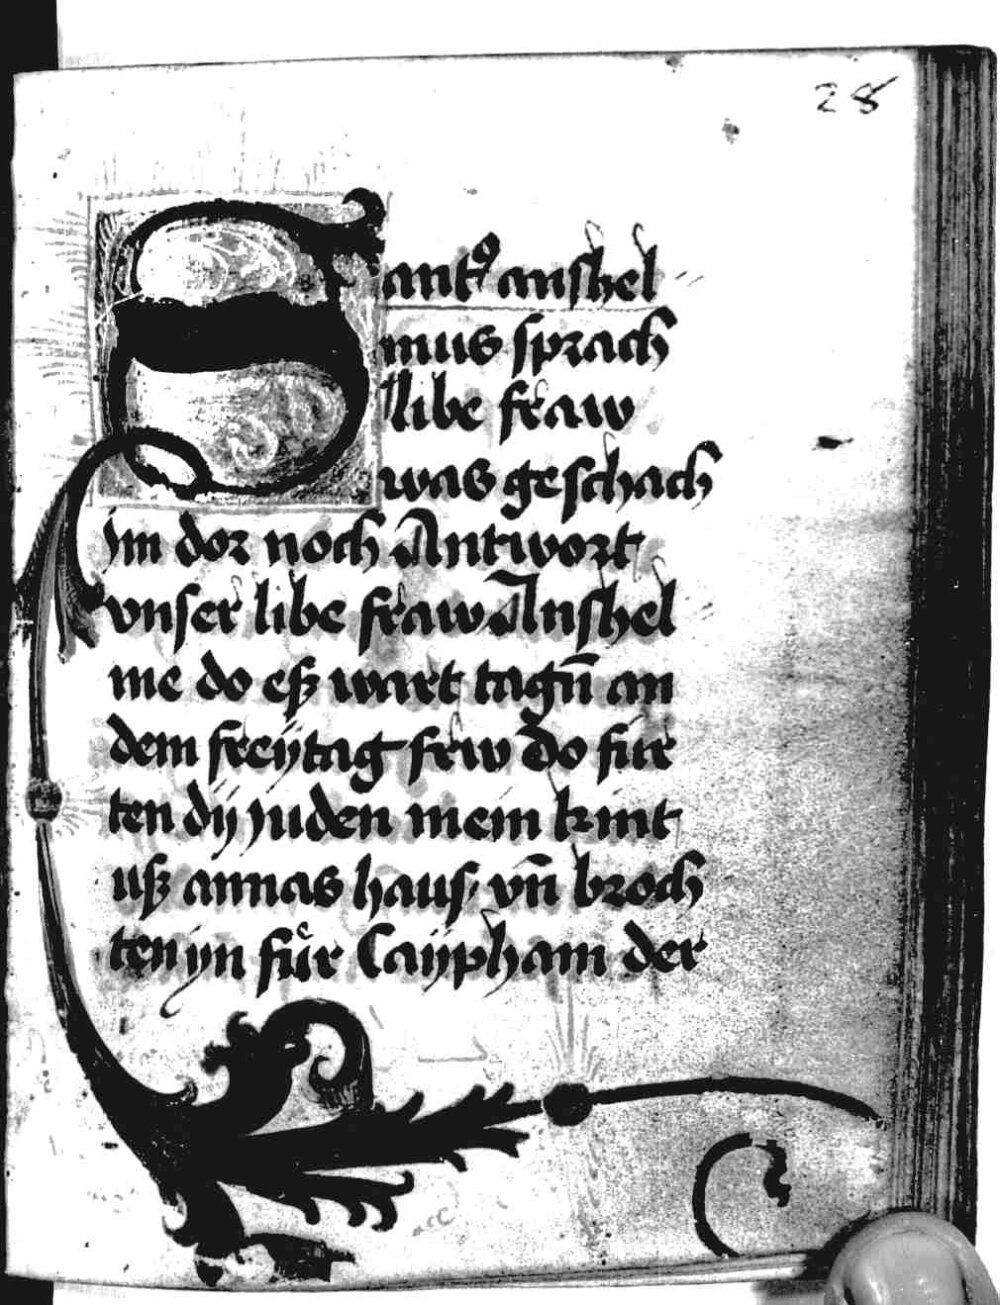 28
Santꝰ anshel
mus sprach
libe fraw
was geschach
im dor noch Antwort
vnser libe fraw Anshel
me do eß wart tagn̄ an
dem freÿtag frw do fur
ten dÿ juden mein kint
uß annas haus vn̄ broch
ten yn fuͤr Caÿpham der